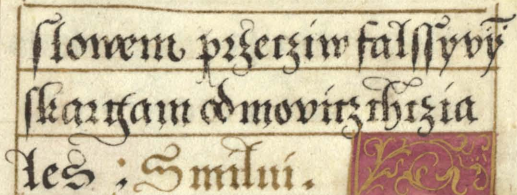 slowem przetziw falssyvÿ
skargam odmovitz chtzia
les : Smilui.